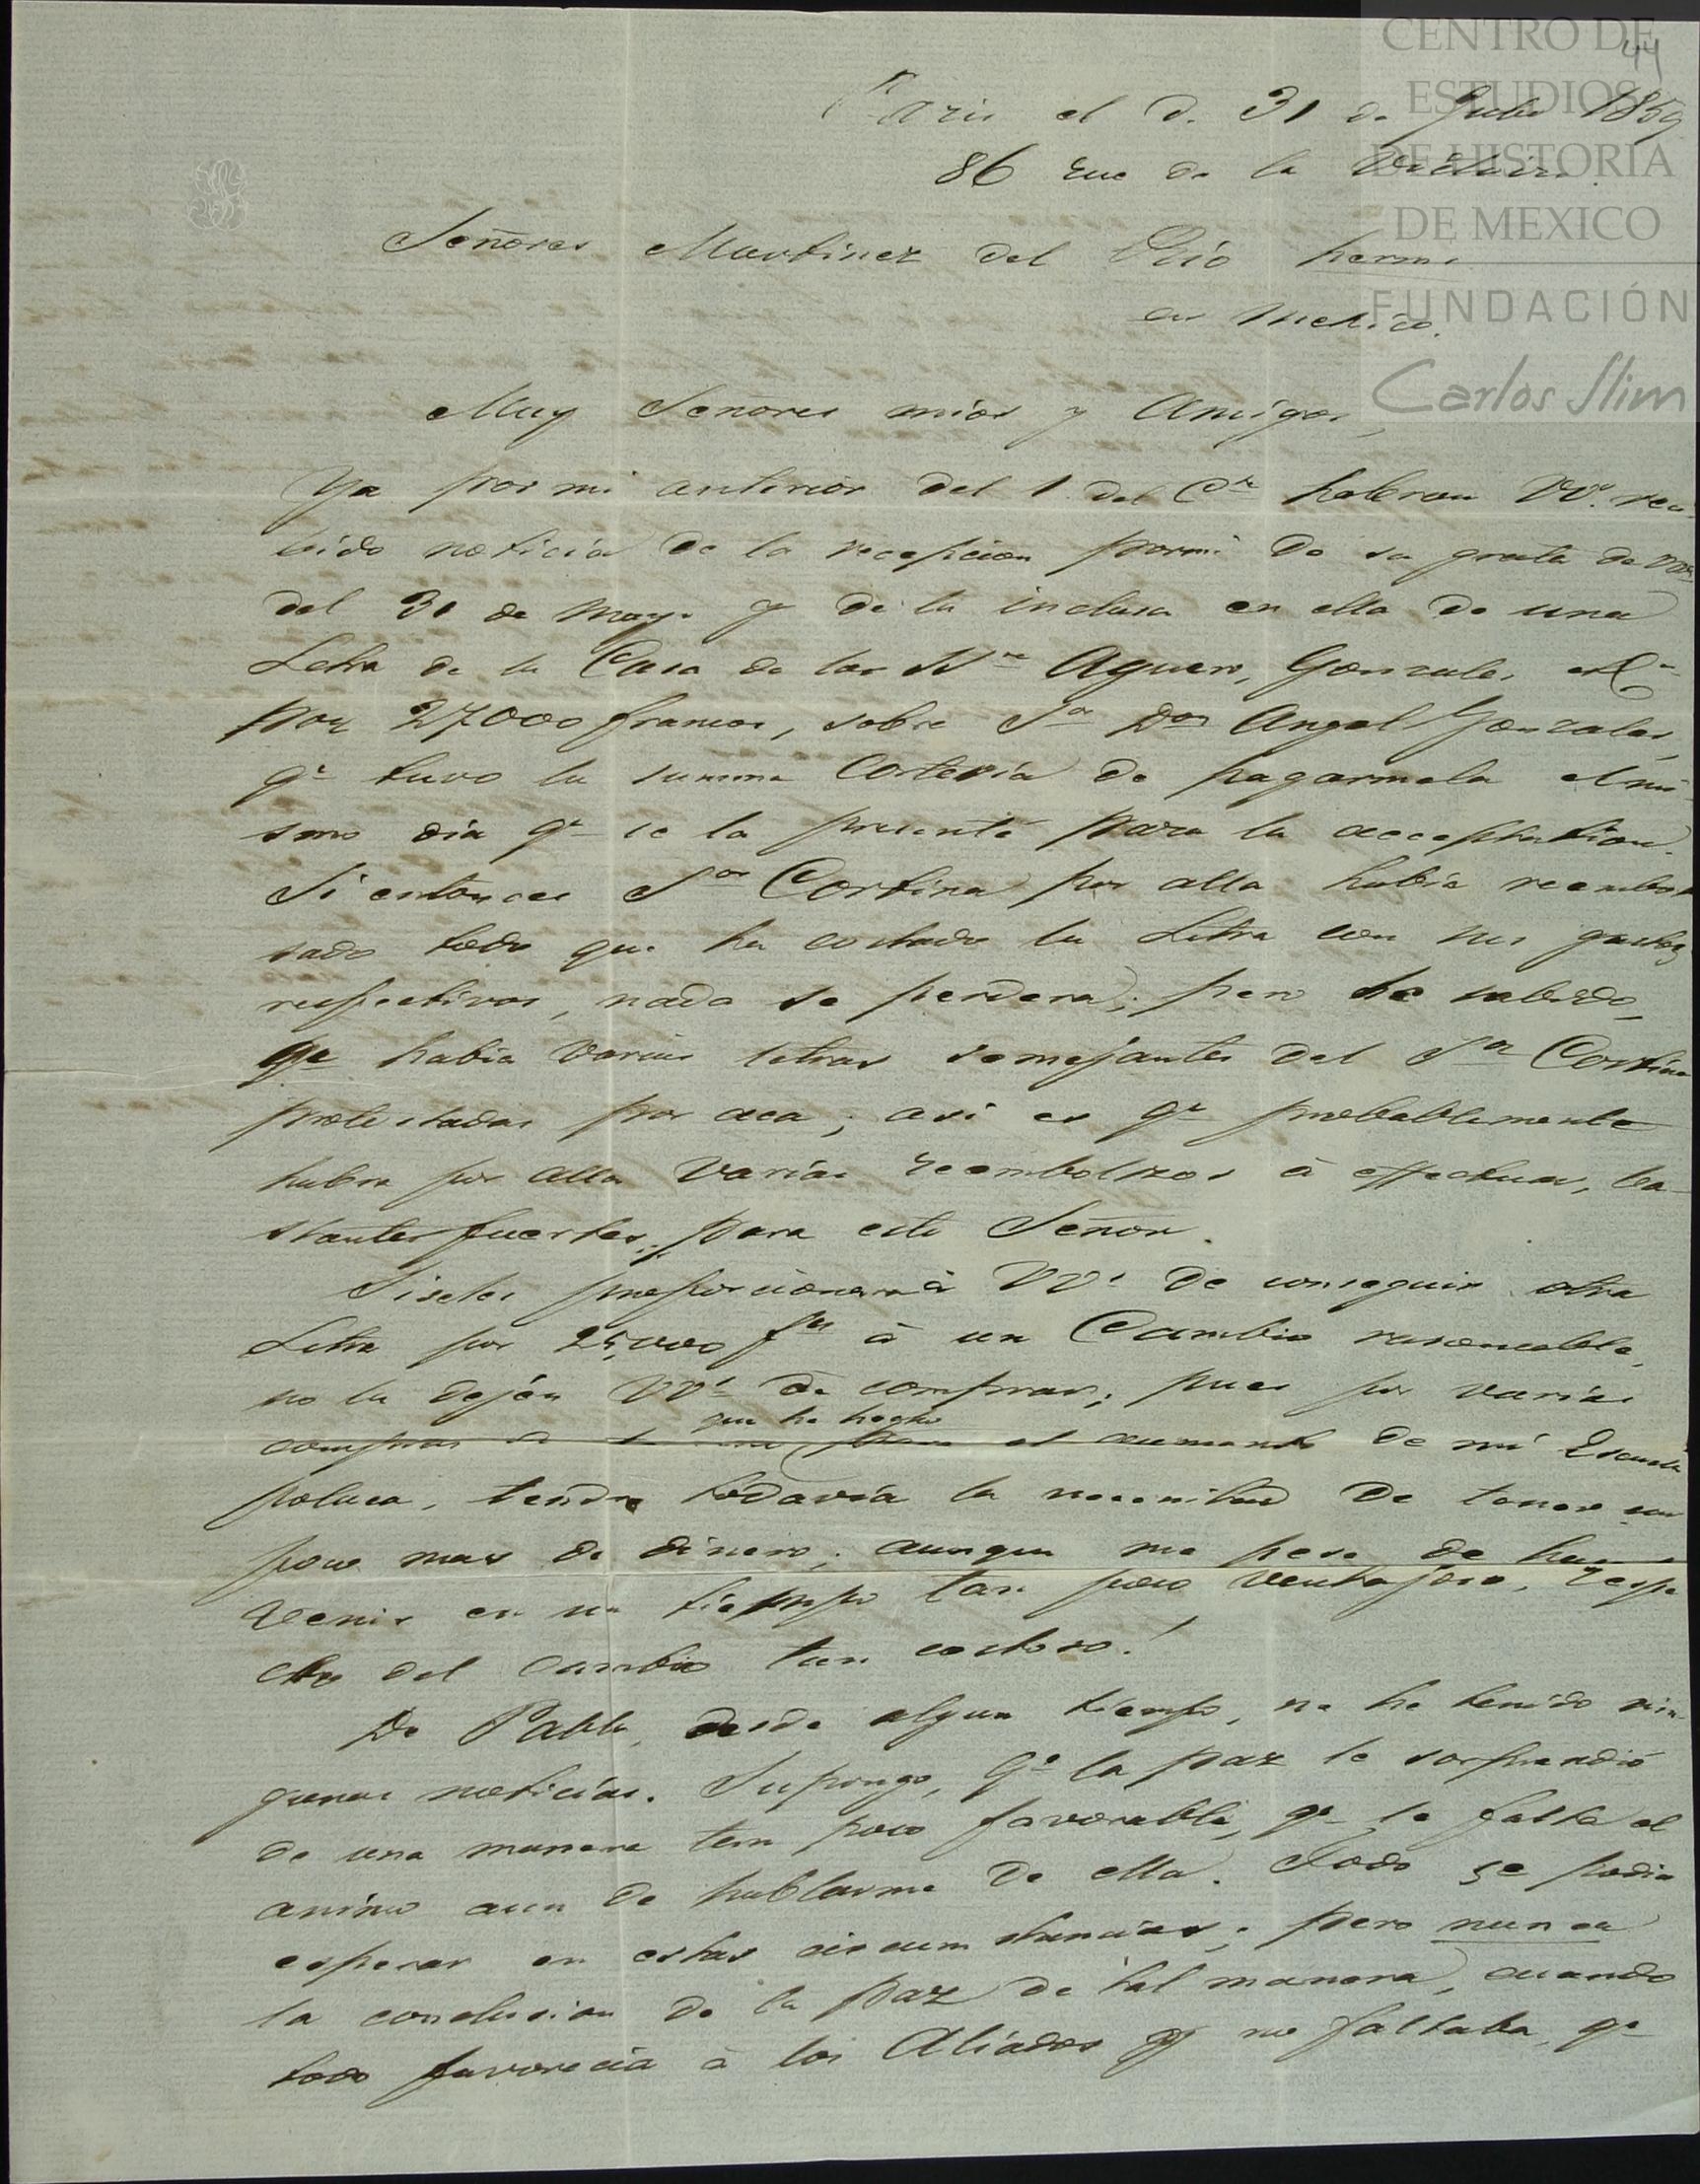 CENTRO DE
ESTUDIOS
DE HISTORIA
DE MEXICO
FUNDACIÓN
Carlos Slim
44
Paris el d. 31 de Julio 1859
86 rue de la
Señores Martinez del Rio herms
en Mexico.
Muy Senores mios y Amigos,
Ya por mi anterior del 1. del Cte habran VVs. reci-
bido noticia de la recepcion por mi de su grata de VVs
del 31 de Mayo y de la inclusa en ella de una
Letra de la Casa de los SSres Aguero, Gonzales, et Ca
por 27000 francos, sobre Sor Don Angel Gonzales,
qe tuvo la summa Cortesia de pagarmela el mi-
smo dia qe se la presenté para la acceptation.
Si entonces Sor Cortina por alla habia reembol-
sado todo que ha costado la Letra con sus gastos
respectivos, nada se perdera; pero he sabido,
qe habia varias letras semejantes del Sor Cortina
protestadas por aca; asi es qe probablemente
habra por alla varios reembolzos à effectuar, ba-
stantes fuertes, para este Señor.
Si se les proporcionara à VVs de conseguir otra
Letra por 25,000 fcs à un Cambio rasonable,
no la dején VVs de comprar; pues por varias
que he hecho
compras de el aumento de mi Escuela
polaca, tendre todavia la necesitad de tener un
poco mas de dinero; aunque me pesa de
venir en un tiempo tan poco ventajoso, respe-
cto del cambio tan costoso!
De Pablo, desde algun tiempo, no he tenido nin-
gunas noticias. Supongo, qe la paz le sorprendió
de una manera tan poco favorable, qe le falta el
animo aun de hablarme de ella. Todo se podia
esperar en estas circumstancias; pero nunca
la conclusion de la paz de tal manera, cuando
todo favorecia à los Aliados y no faltaba, qe